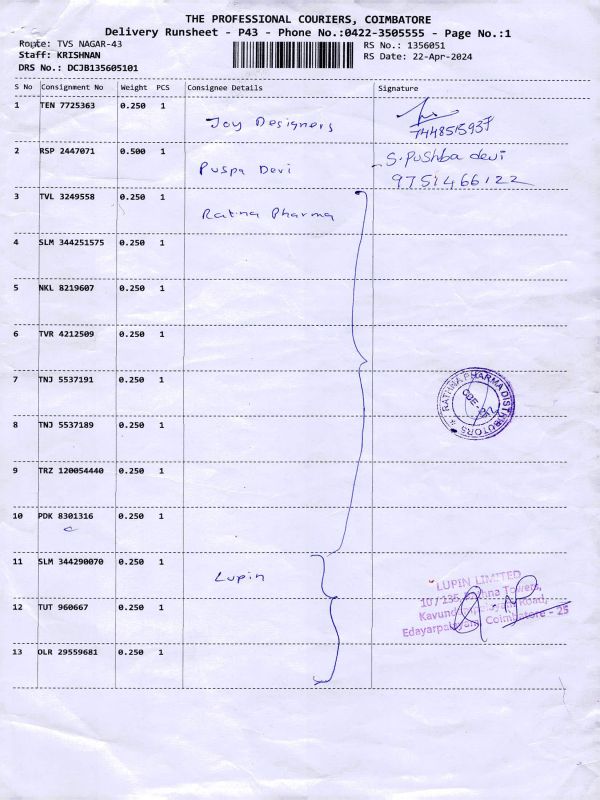 THE PROFESSIONAL COURIERS, COIMBATORE
Delivery Runsheet - P43 - Phone No.:0422-3505555 - Page No.:1
Route: TVS NAGAR-43
RS No.: 1356051
Staff: KRISHNAN
RS Date: 22-Apr-2024
DRS No.: DCJB135605101
S No Consignment No Weight PCS Consignee Details Signature
1 TEN 7725363 0.250 1 Joy Designers
7448515937
2 RSP 2447071 0.500 1 Puspa Devi S.Pushba devi
9751466122
3 TVL 3249558 0.250 1 Ratina Pharma
4 SLM 344251575 0.250 1
5 NKL 8219607 0.250 1
6 TVR 4212509 0.250 1
7 TNJ 5537191 0.250 1
RATHNA PHARMA DISTRIBUTORS
8 TNJ 5537189 0.250 1
9 TRZ 120054440 0.250 1
10 PDK 8301316 0.250 1
11 SLM 344290070 0.250 1 Lupin
LUPIN LIMITED
10 / 135, Towers,
Road,
Coimbatore - 25
12 TUT 960667 0.250 1
13 OLR 29559681 0.250 1